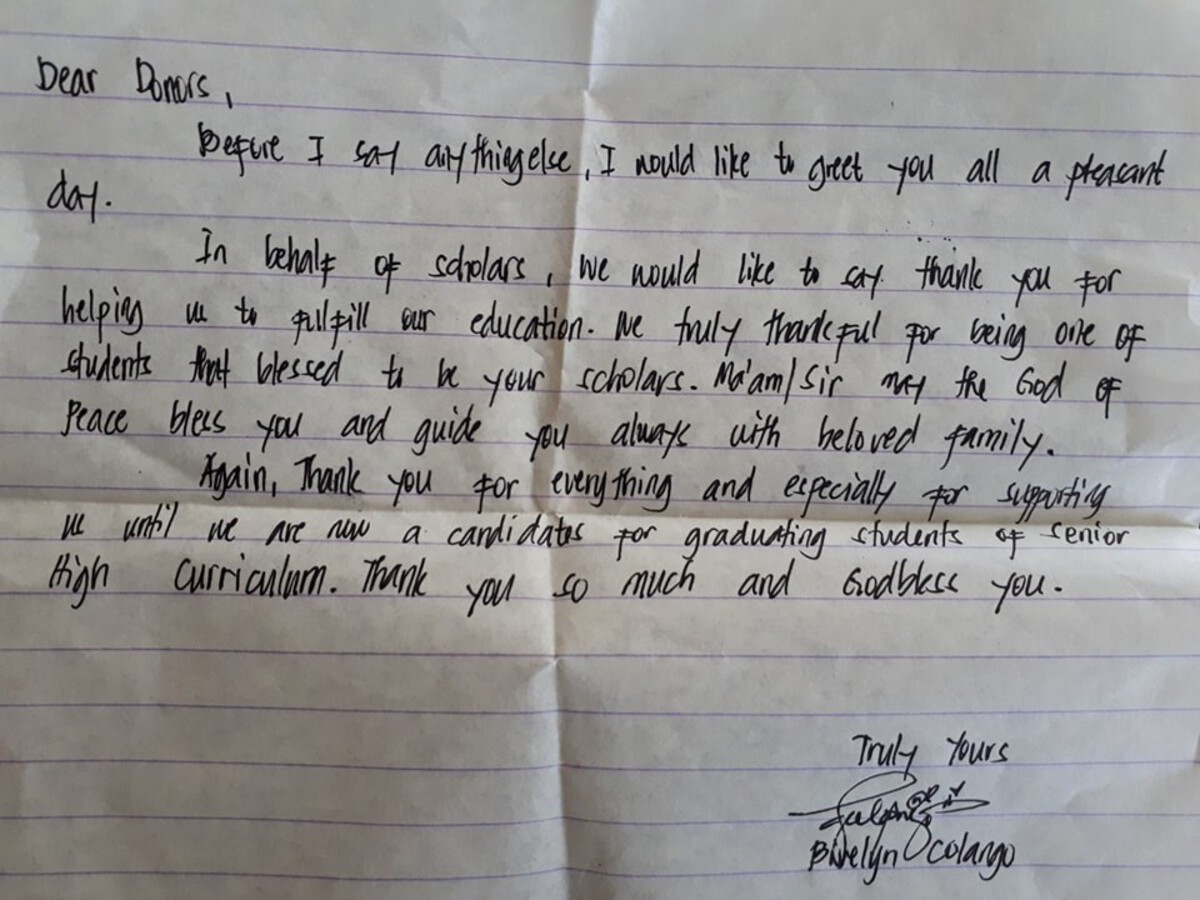 Dear Donors,
Before I say anything else, I would like to greet you all a pleasant
day.
In behalf of scholars, we would like to say thank you for
helping us to fulfill our education. We truly thankful for being one of
students that blessed to be your scholars. Ma'am/Sir may the God of
Peace bless you and guide you always with beloved family.
Again, Thank you for everything and especially for supporting
us until we are now a candidates for graduating students of Senior
High Curriculum. Thank you so much and Godbless you.
Truly Yours
Colango